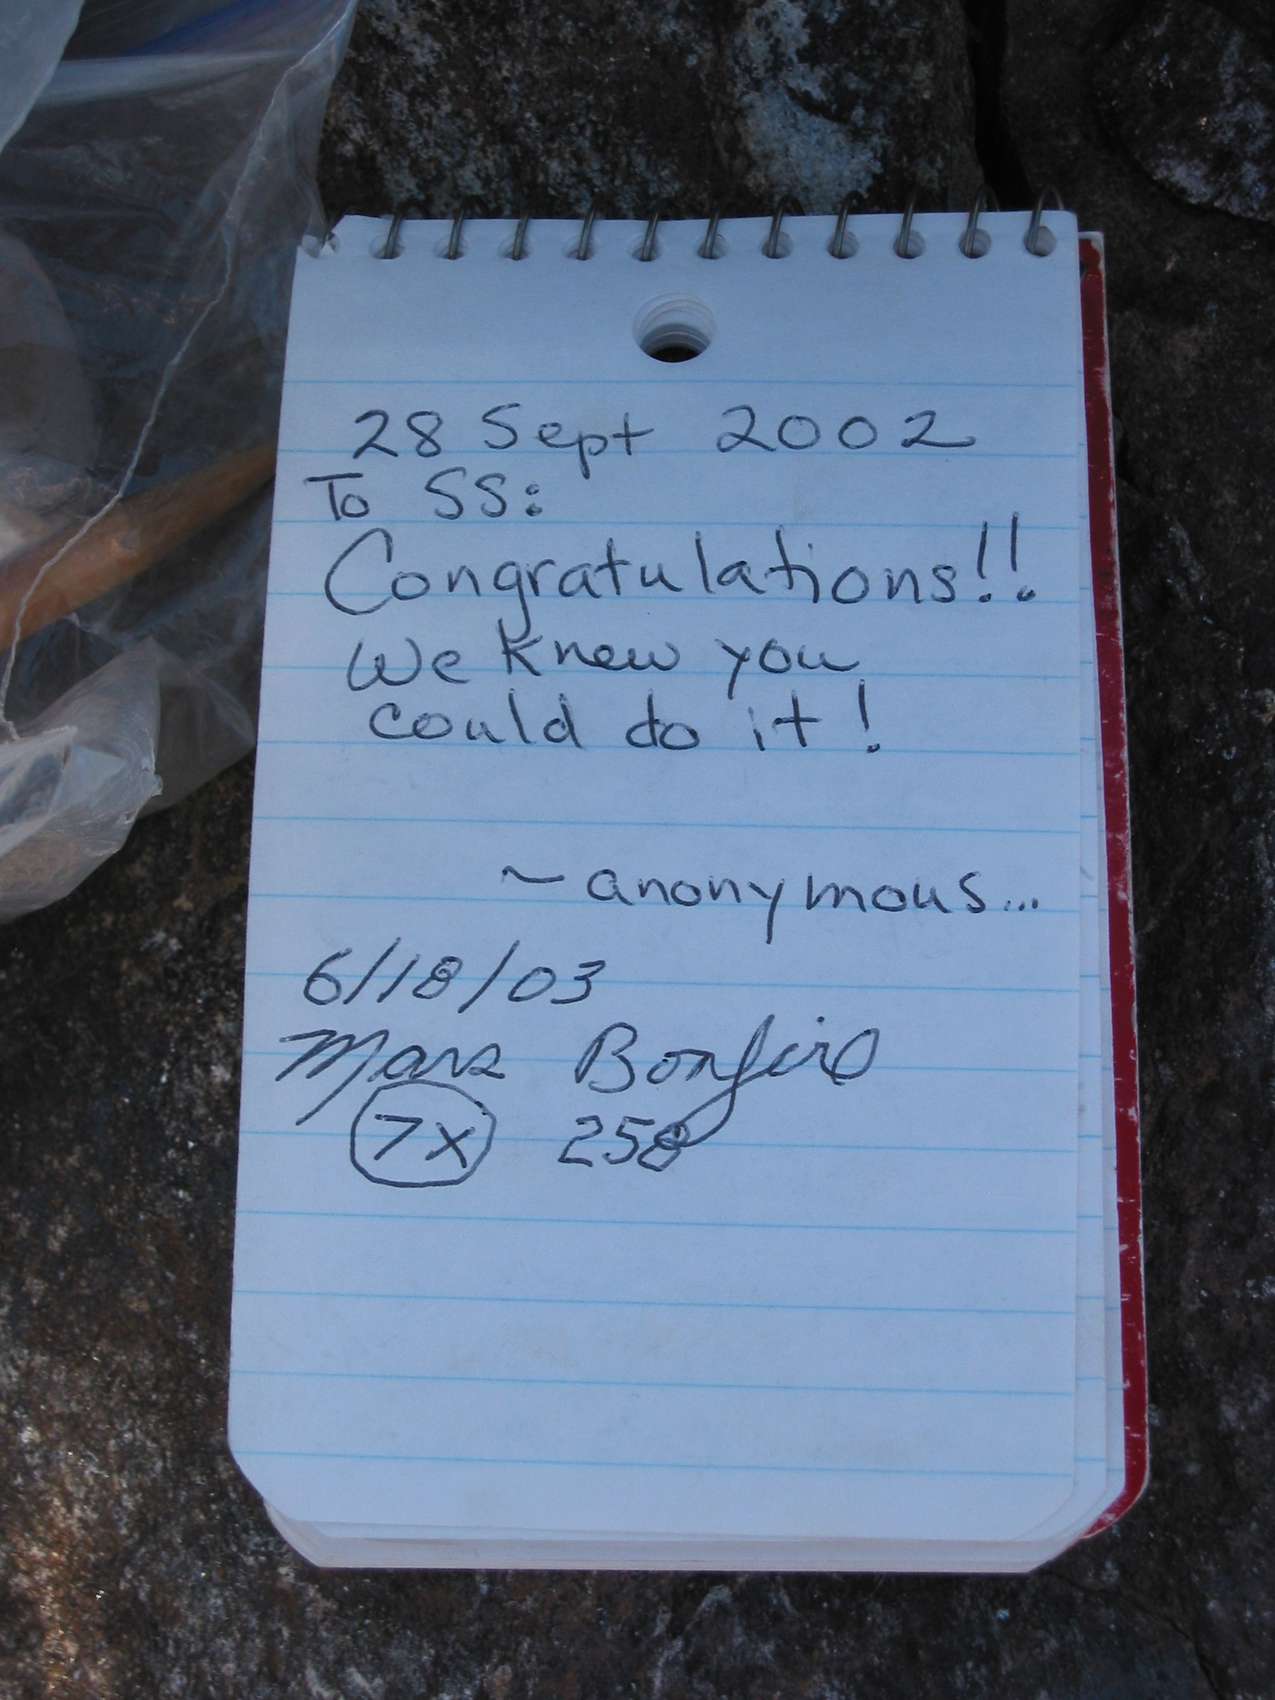 28 Sept 2002
To SS:
Congratulations!!
We knew you
could do it!
~anonymous...
6/18/03
Mars Bonfire
7x 258